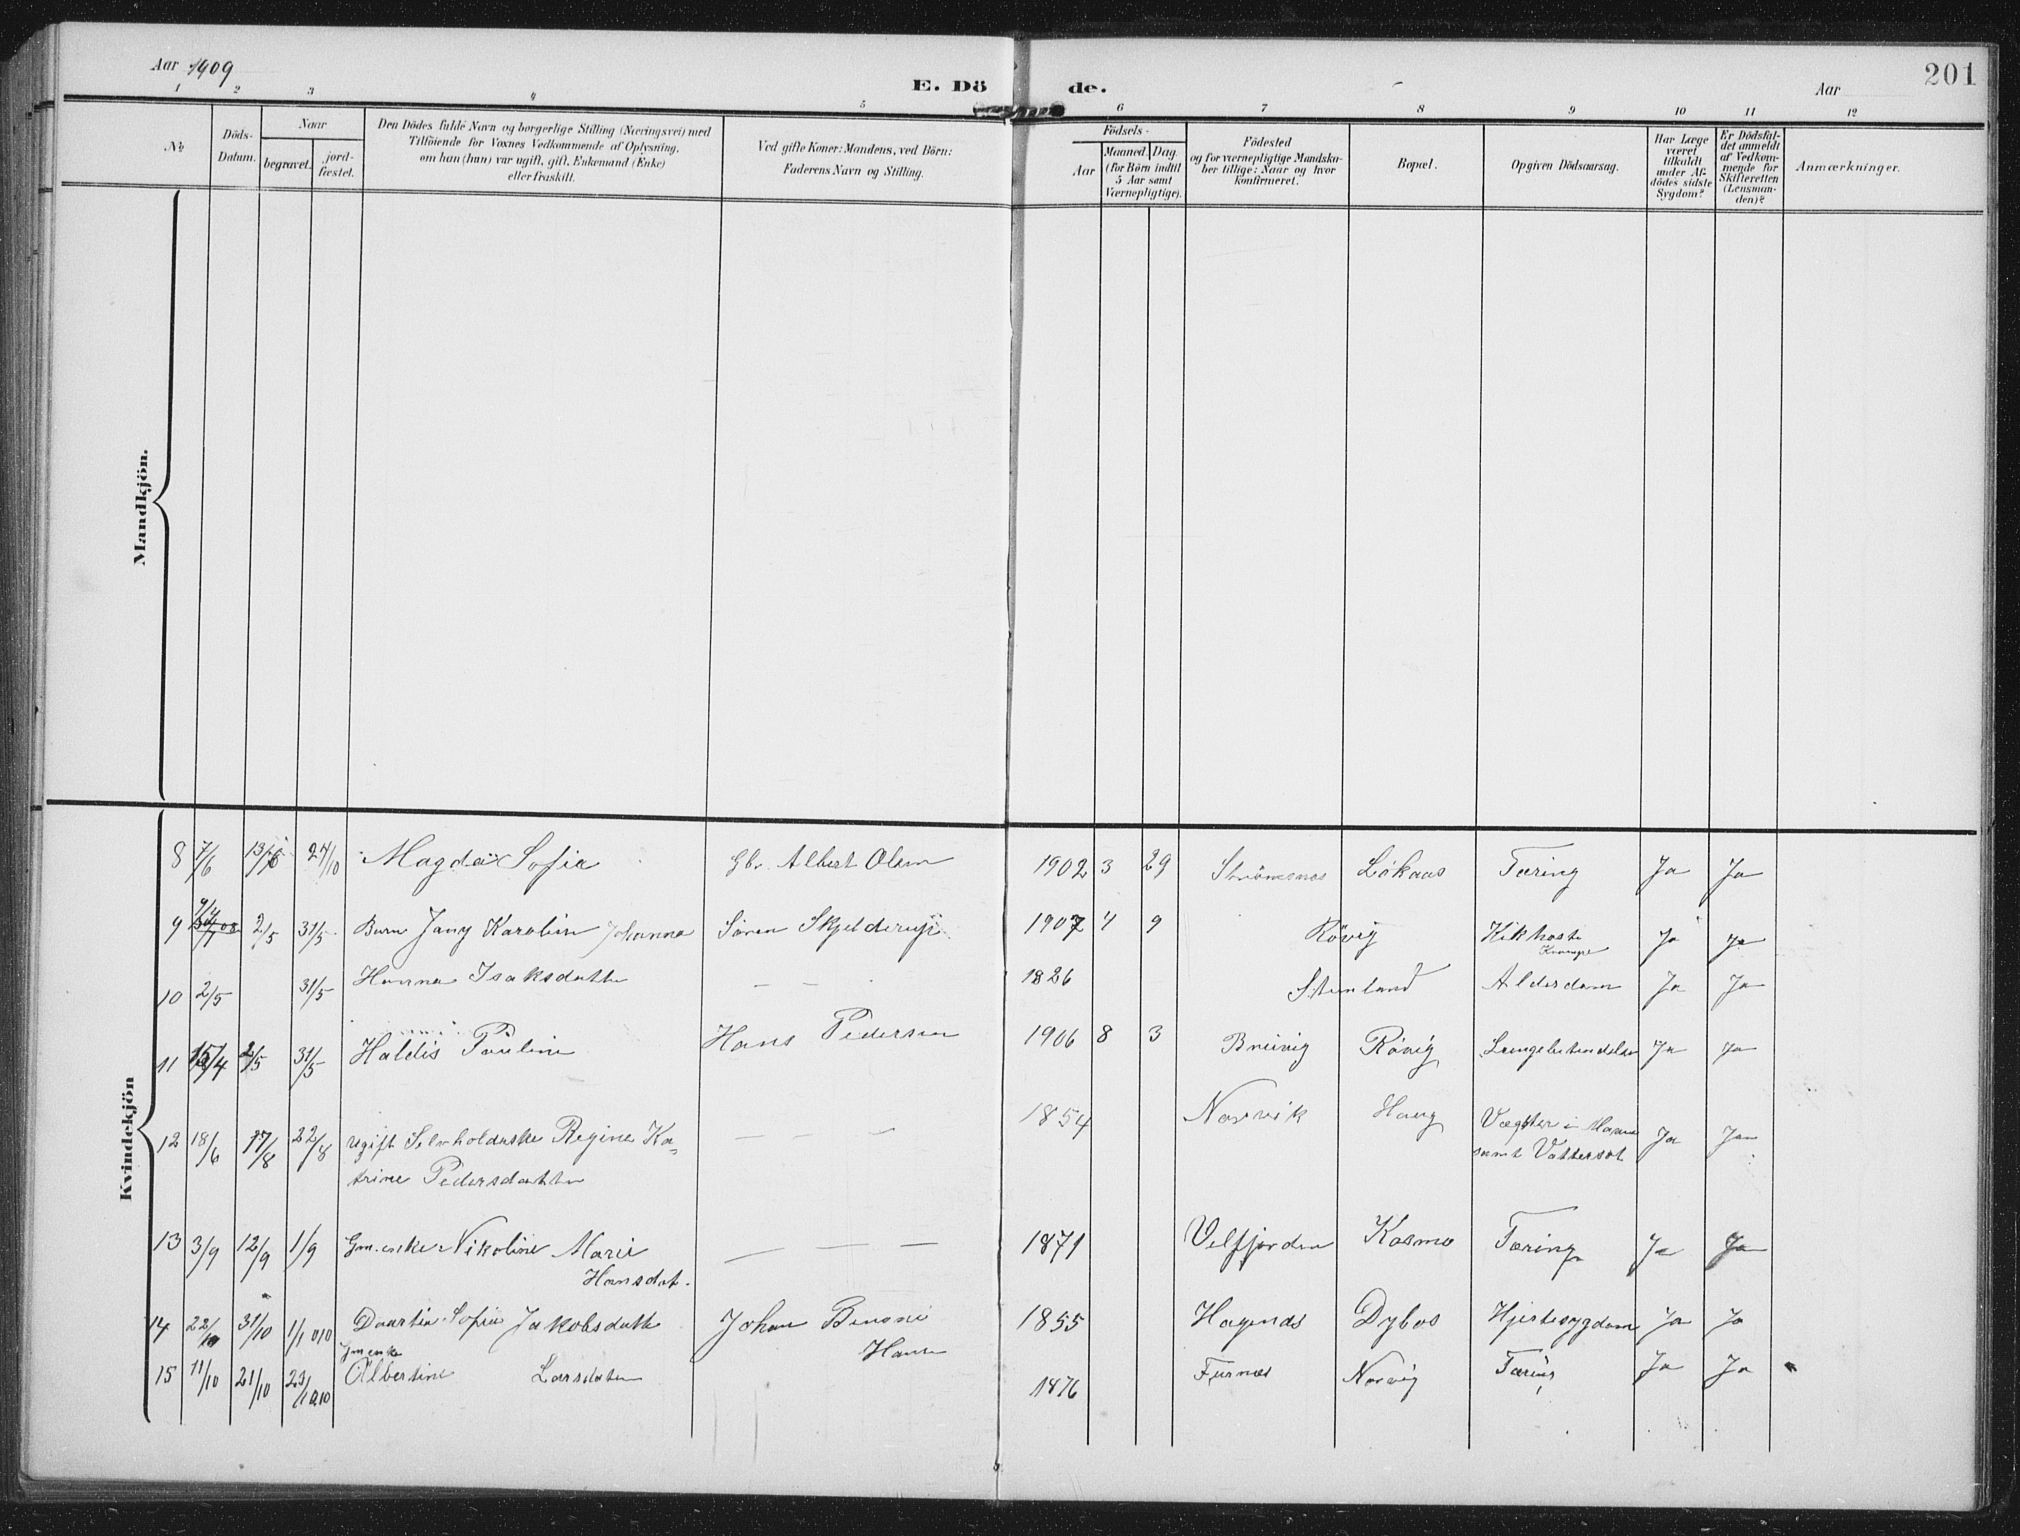 Aar 1909
E. Dö de.
Aar
201
1 2 3 4 5 6 7 8 9 10 11 12
No
Döds-
Datum.
Naar
begravet.
jord-
fæstet.
Den Dödes fulde Navn og borgerlige Stilling (Næringsvei) med
Tilföiende for Voxnes Vedkommende af Oplysning,
om han (hun) var ugift, gift, Enkemand (Enke)
eller fraskilt.
Ved gifte Koner: Mandens, ved Börn:
Faderens Navn og Stilling.
Födsels-
Aar
Maaned. Dag.
(for Börn indtil
5 Aar samt
Værnepligtige).
Födested
og for værnepligtige Mandska-
ber tillige: Naar og hvor
konfirmeret.
Bopæl.
Opgiven Dödsaarsag.
Har Læge
været
tilkaldt
under Af-
dödes sidste
Sygdom?
Er Dödsfal-
det anmeldt
af Vedkom-
mende for
Skifteretten
(Lensman-
den)?
Anmærkninger.
Mandkjön.
Kvindekjön
8 7/6 13/6 24/10 Magda Sofie Gbr. Albert Olsen 1902 3 29 Strömsnes Lökaas Tæring Ja Ja
9 2/5 31/5 Barn Jany Karolin Johanna Sören Skjelderup 1907 4 9 Rövig Kikhoste Ja Ja
10 2/5 31/5 Hanna Isaksdatter — — 1826 Stenland Alderdom Ja Ja
11 15/4 2/5 31/5 Haldis Pauline Hans Pedersen 1906 8 3 Breivig Rövig Lungebetendelse Ja Ja
12 18/6 17/8 22/8 ugift Selvholderske Regine Ka- — — — 1854 Narvik Haug Vægster i Maven Ja Ja
trine Pedersdatter samt Vattersot
13 3/9 12/9 1/9 Gm.enke Nikoline Marie — — — 1871 Velfjorden Kosmo Tæring Ja Ja
Hansdat.
14 22/10 31/10 1/1 010 Daartea Sofie Jakobsdatter Johan 1855 Dybos Hjertesygdom Ja Ja
Gmenke Hansen
15 11/10 21/10 23/1 010 Albertine Larsdatter 1876 Furnes Norvig Tæring Ja Ja